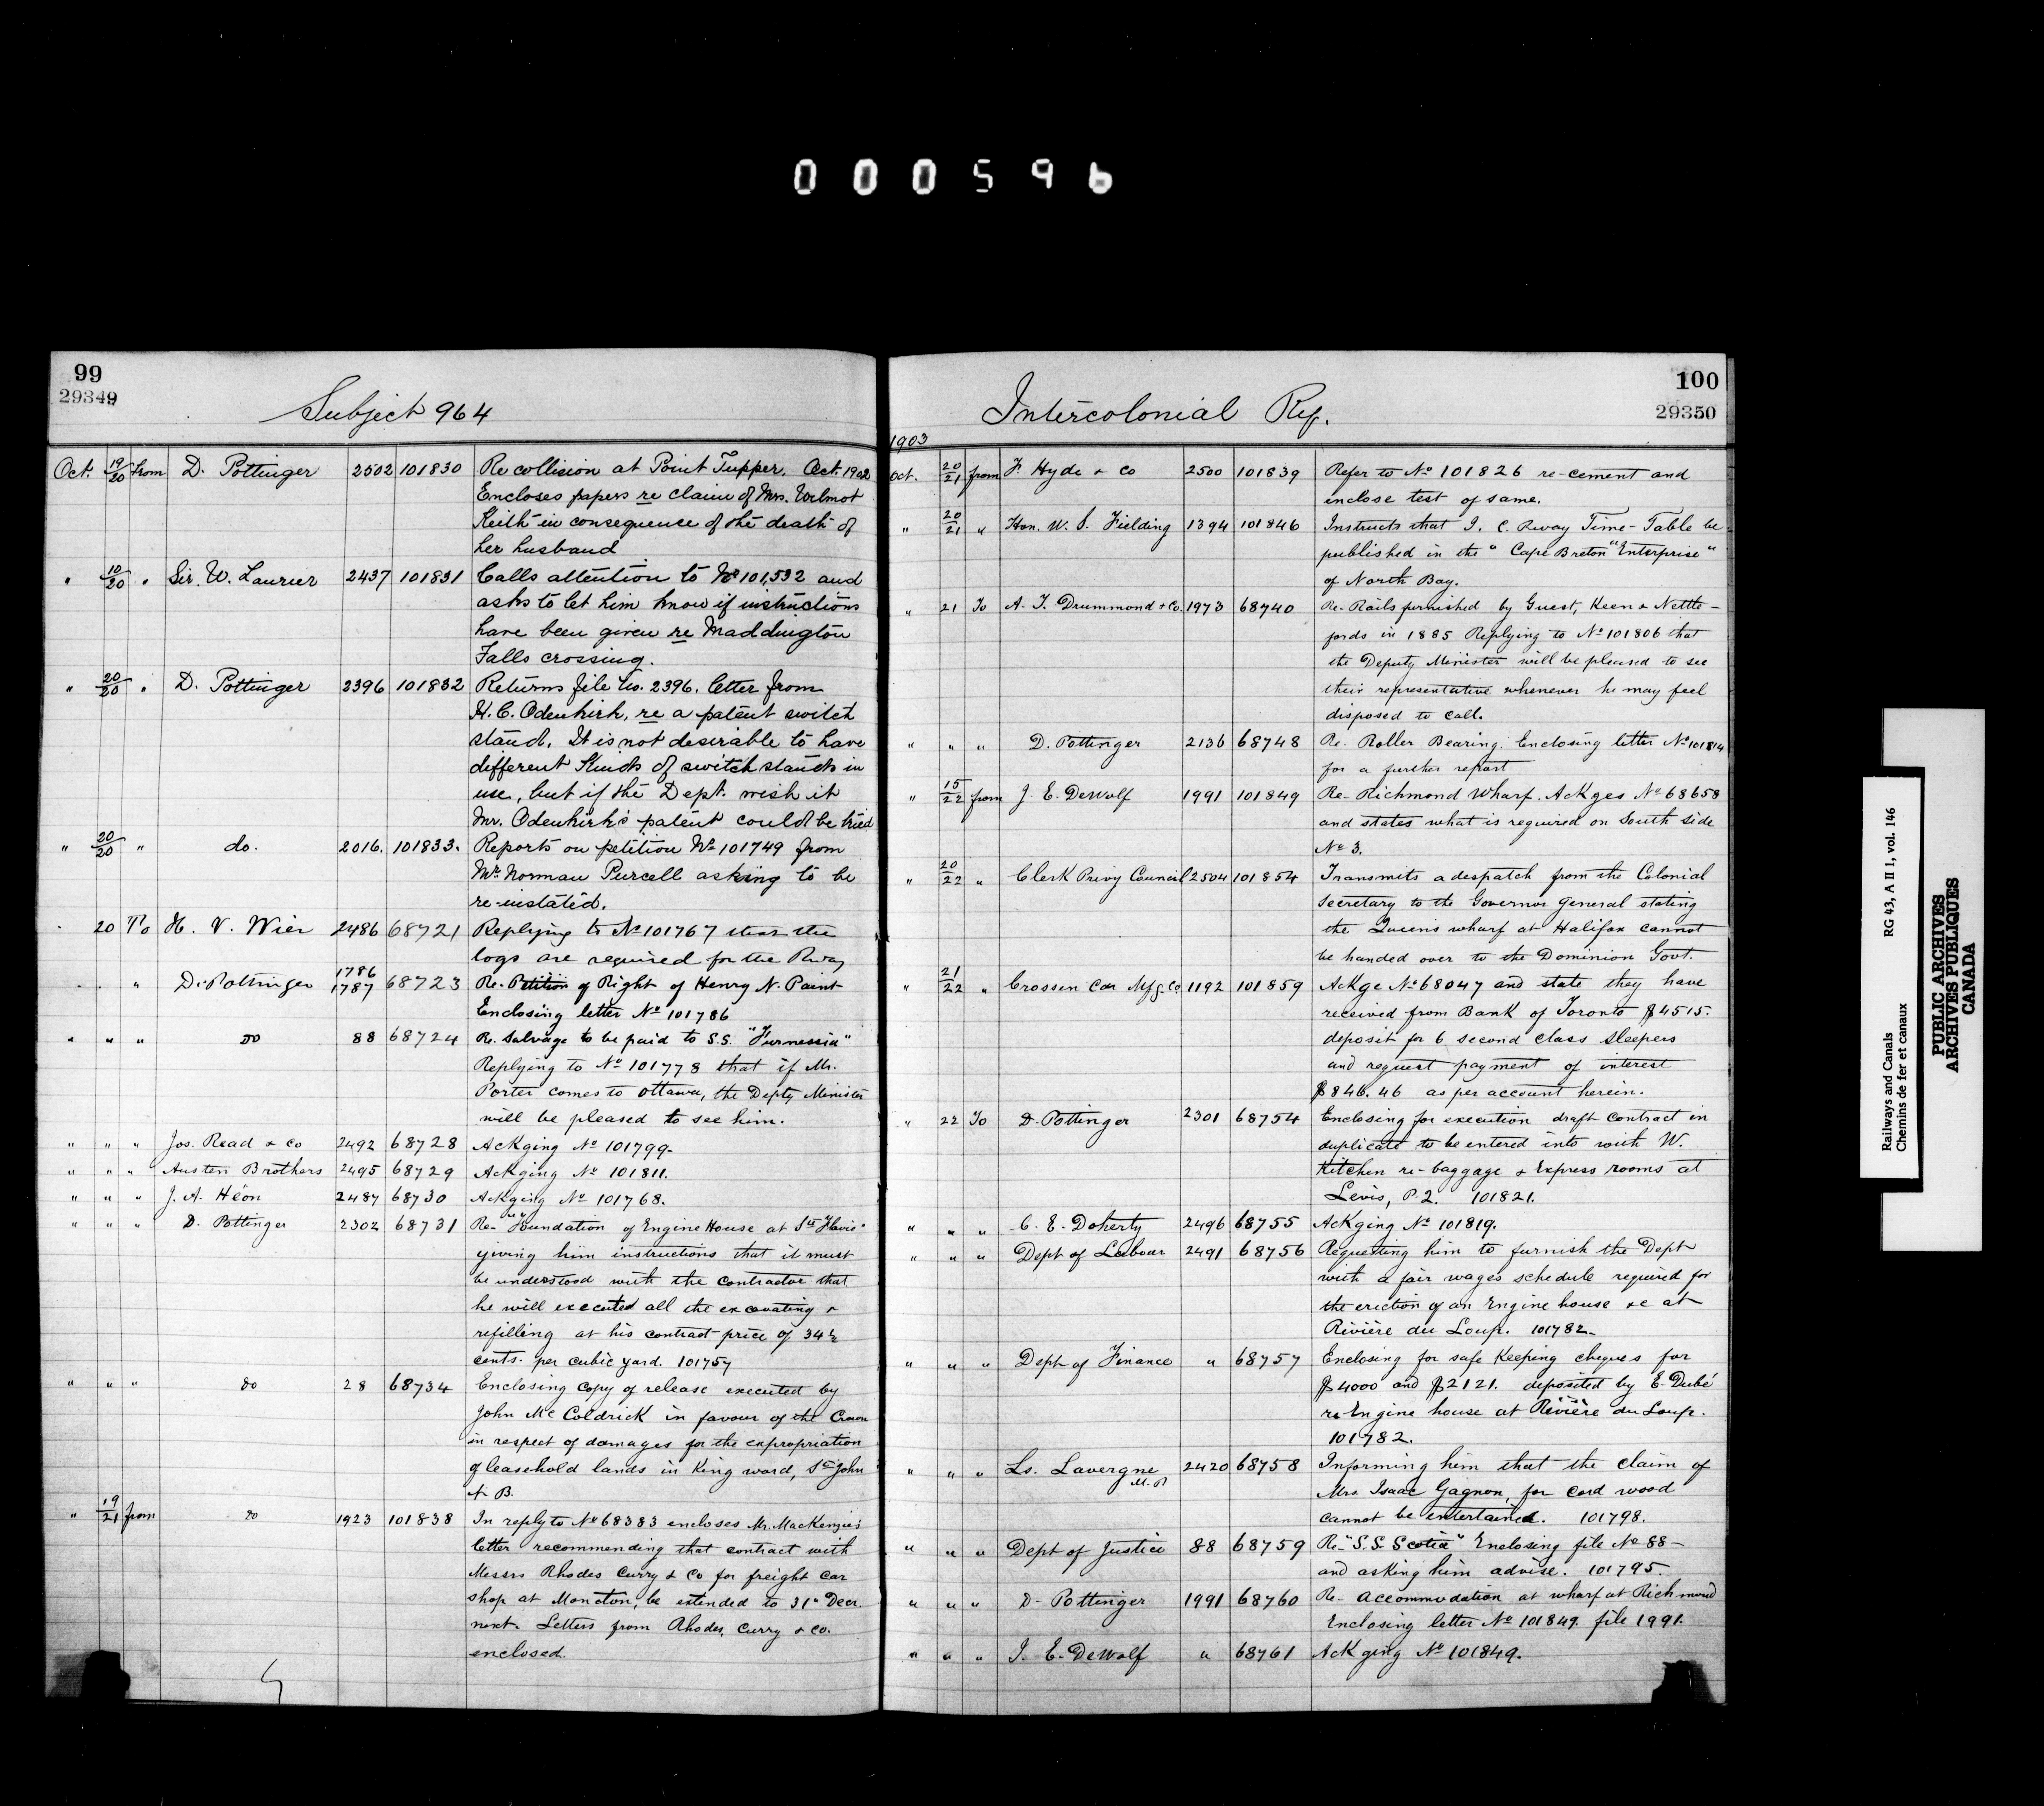 000596
99
29349
Subject 964
Oct. 19/20 from D. Pottinger 2502 101830 Re collision at Point Tupper. Oct. 1902
Encloses papers re claim of Mrs. Wilmot
Keith in consequence of the death of
her husband
" 10/20 " Sir W. Laurier 2437 101831 Calls attention to No 101,532 and
asks to let him know if instructions
have been given re Maddington
Falls crossing.
" 20/20 " D. Pottinger 2396 101832 Returns file No. 2396. letter from
H. C. Odenkirk, re a patent switch
stand. It is not desirable to have
different kinds of switch stands in
use, but if the Dept. wish it
Mr. Odenkirk's patent could be tried
" 20/20 " do. 2016. 101833. Reports on petition No 101749 from
Mr. Norman Purcell asking to be
re-instated.
" 20 To H. V. Wier 2486 68721 Replying to No 101767 that the
logs are required for the Rway
" " " D. Pottinger 1786 1787 68723 Re- Petition of Right of Henry N. Paint
Enclosing letter No 101786
" " " Do 88 68724 Re. Salvage to be paid to S.S. "Furnessia"
Replying to No 101778 that if Mr.
Porter comes to Ottawa, the Depty Minister
will be pleased to see him.
" " " Jos. Read & Co 2492 68728 Ackging No 101799.
" " " Austen Brothers 2495 68729 Ackging No 101811.
" " " J. A. Héon 2487 68730 Ackging No 101768.
" " " D. Pottinger 2302 68731 Re- Foundation of Engine House at Ste Flavie
giving him instructions that it must
be understood with the contractor that
he will executed all the excavating &
refilling at his contract price of 34½
cents. per cubic yard. 101757
" " " do 28 68734 Enclosing copy of release executed by
John McColdrick in favour of the Crown
in respect of damages for the expropriation
of leasehold lands in King ward, St John
N. B.
" 19/21 from do 1923 101838 In reply to No 68383 encloses Mr. MacKenzie's
letter recommending that contract with
Messrs Rhodes Curry & Co for freight car
shop at Moncton, be extended to 31st Decr.
next. Letters from Rhodes, Curry & Co.
enclosed.
100
29350
Intercolonial Ry.
1903
Oct. 20/21 from F. Hyde & Co 2500 101839 Refer to No 101826 re-cement and
inclose test of same.
" 20/21 " Hon. W. S. Fielding 1394 101846 Instructs that I. C. Rway Time-Table be
published in the "Cape Breton" Enterprise"
of North Bay.
" 21 To A. T. Drummond & Co. 1973 68740 Re- Rails furnished by Guest, Keen & Nettle-
fords in 1885 Replying to No 101806 that
the Deputy Minister will be pleased to see
their representative whenever he may feel
disposed to call.
" " " D. Pottinger 2136 68748 Re. Roller Bearing. Enclosing letter No 101814
for a further report
" 15/22 from J. E. DeWolf 1991 101849 Re- Richmond Wharf. Ackges No 68658
and states what is required on South side
No 3.
" 20/22 " Clerk Privy Council 2504 101854 Transmits a despatch from the Colonial
Secretary to the Governor General stating
the Queens wharf at Halifax cannot
be handed over to the Dominion Govt.
" 21/22 " Crossen Car Mfg Co. 1192 101859 Ackge No 68047 and state they have
received from Bank of Toronto $4515.
deposit for 6 second class sleepers
and request payment of interest
$846.46 as per account herein.
" 22 To D. Pottinger 2301 68754 Enclosing for execution draft contract in
duplicate to be entered into with W.
Kitchen re-baggage & Express rooms at
Levis, P.Q. 101821.
" " " C. E. Doherty 2496 68755 Ackging No 101819.
" " " Dept of Labour 2491 68756 Requesting him to furnish the Dept
with a fair wages schedule required for
the erection of an Engine house &c at
Rivière du Loup. 101782.
" " " Dept of Finance " 68757 Enclosing for safe keeping cheques for
$4000 and $2121. deposited by E. Dubé
re Engine house at Rivière du Loup.
101782.
" " " Ls. Lavergne M.P. 2420 68758 Informing him that the claim of
Mrs. Isaac Gagnon, for cord wood
cannot be entertained. 101798.
" " " Dept of Justice 88 68759 Re- "S.S. Scotia" Enclosing file No 88-
and asking him advise. 101795.
" " " D. Pottinger 1991 68760 Re- Accommodation at wharf at Richmond
Enclosing letter No 101849. file 1991.
" " " J. E. DeWolf " 68761 Ackging No 101849.
Railways and Canals RG 43, A II 1, vol. 146
Chemins de fer et canaux
PUBLIC ARCHIVES
ARCHIVES PUBLIQUES
CANADA